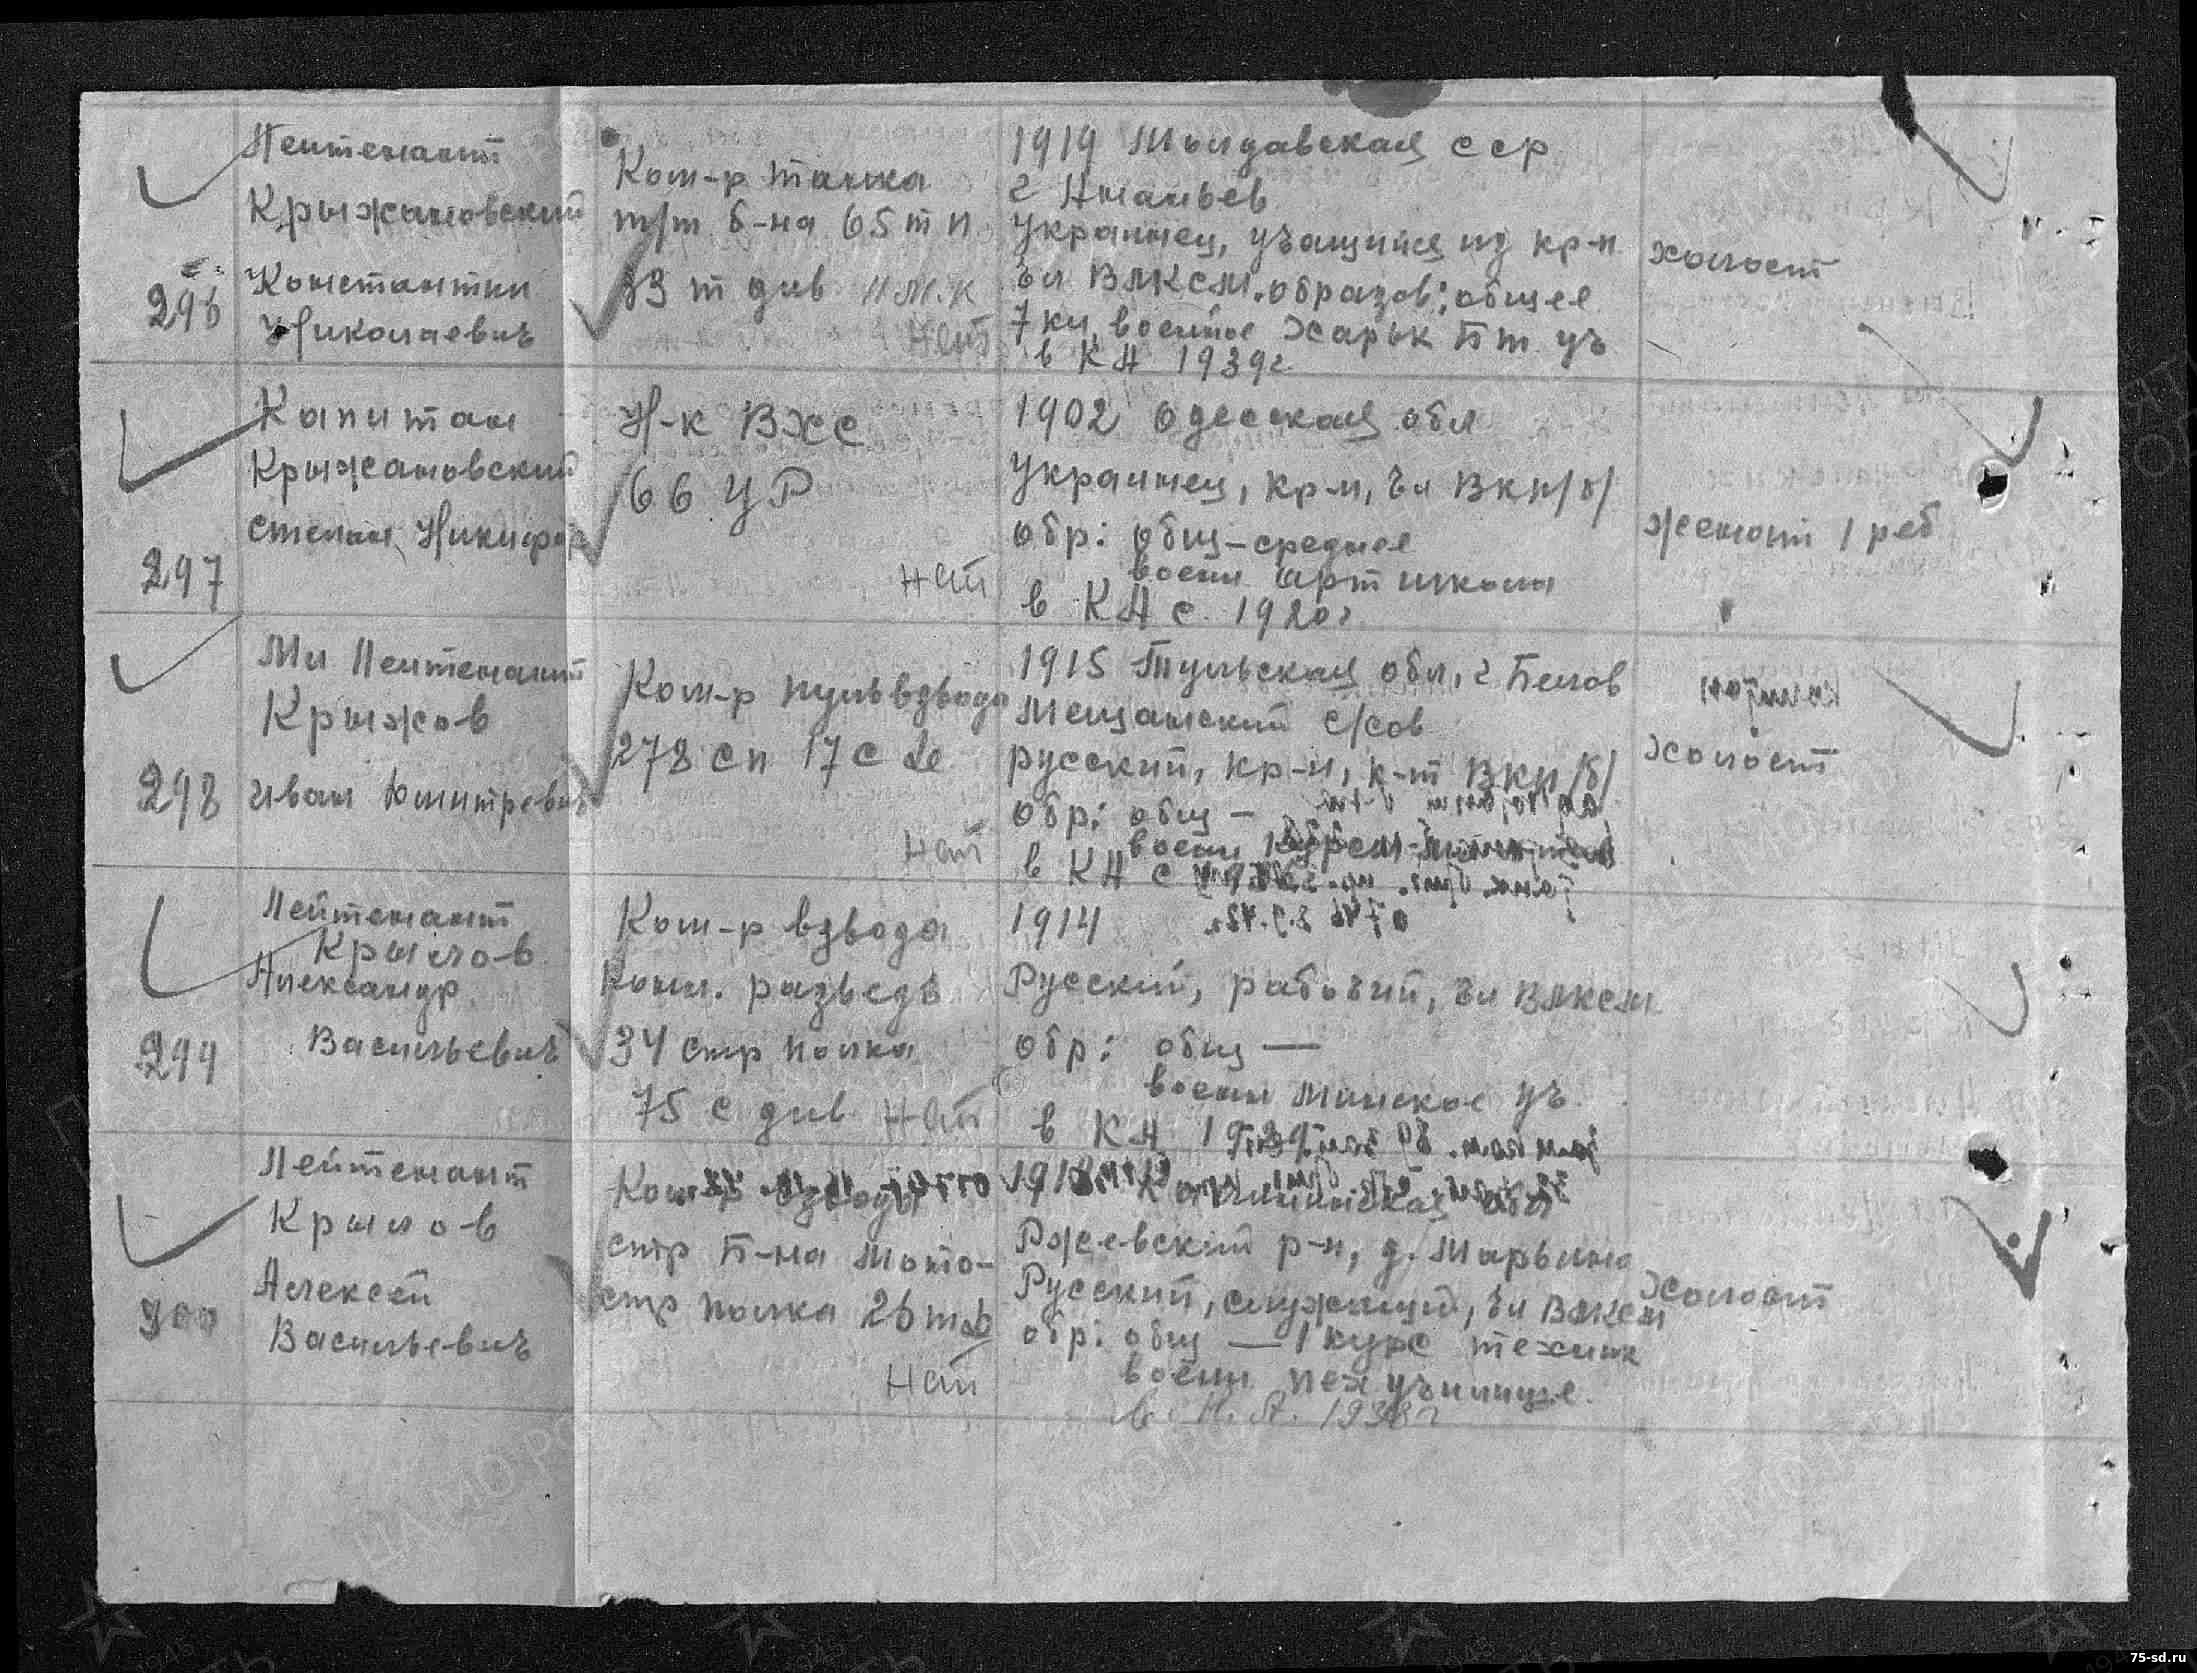 Лейтенант
Крыжановский
Константин
Николаевич
296
Ком-р танка
т/т б-на 65 т п
33 т див 11 М.К
Нет
1919 Молдавская сср
г Ананьев
Украинец, учащийся из кр-н
чл ВЛКСМ. образов: общее
7 кл, военное Харьк Бт уч
в КА 1939г
холост
Капитан
Крыжановский
степан Никифор
297
Н-к ВХС
66 УР
Нет
1902 Одесская обл
Украинец, кр-н, чл ВКП/б/
обр: общ-среднее
военн арт школа
в КА с 1920г
женат 1 реб
Мл Лейтенант
Крыжов
Иван Дмитревич
298
Ком-р пульвзвода
278 сп 17 с д
Нет
1915 Тульская обл, г Белов
Мещанский с/сов
русский, кр-н, к-т ВКП/б/
обр: общ —
военн
в КА с
холост
Лейтенант
Крылов
Александр
Васильевич
299
Ком-р взвода
Конн. разведч
34 стр полка
75 с див Нет
1914
Русский, рабочий, чл ВЛКСМ
обр: общ —
военн Минское уч
в КА
Лейтенант
Крылов
Алексей
Васильевич
300
Ком-р взвода
стр Б-на Мото-
стр полка 26 тд
Нет
1918 Калининская обл
Ржевский р-н, д. Марьино
Русский, служащий, чл ВЛКСМ
обр: общ — 1 курс техник
военн пех училище.
в К. А. 1938г
холост
75-sd.ru